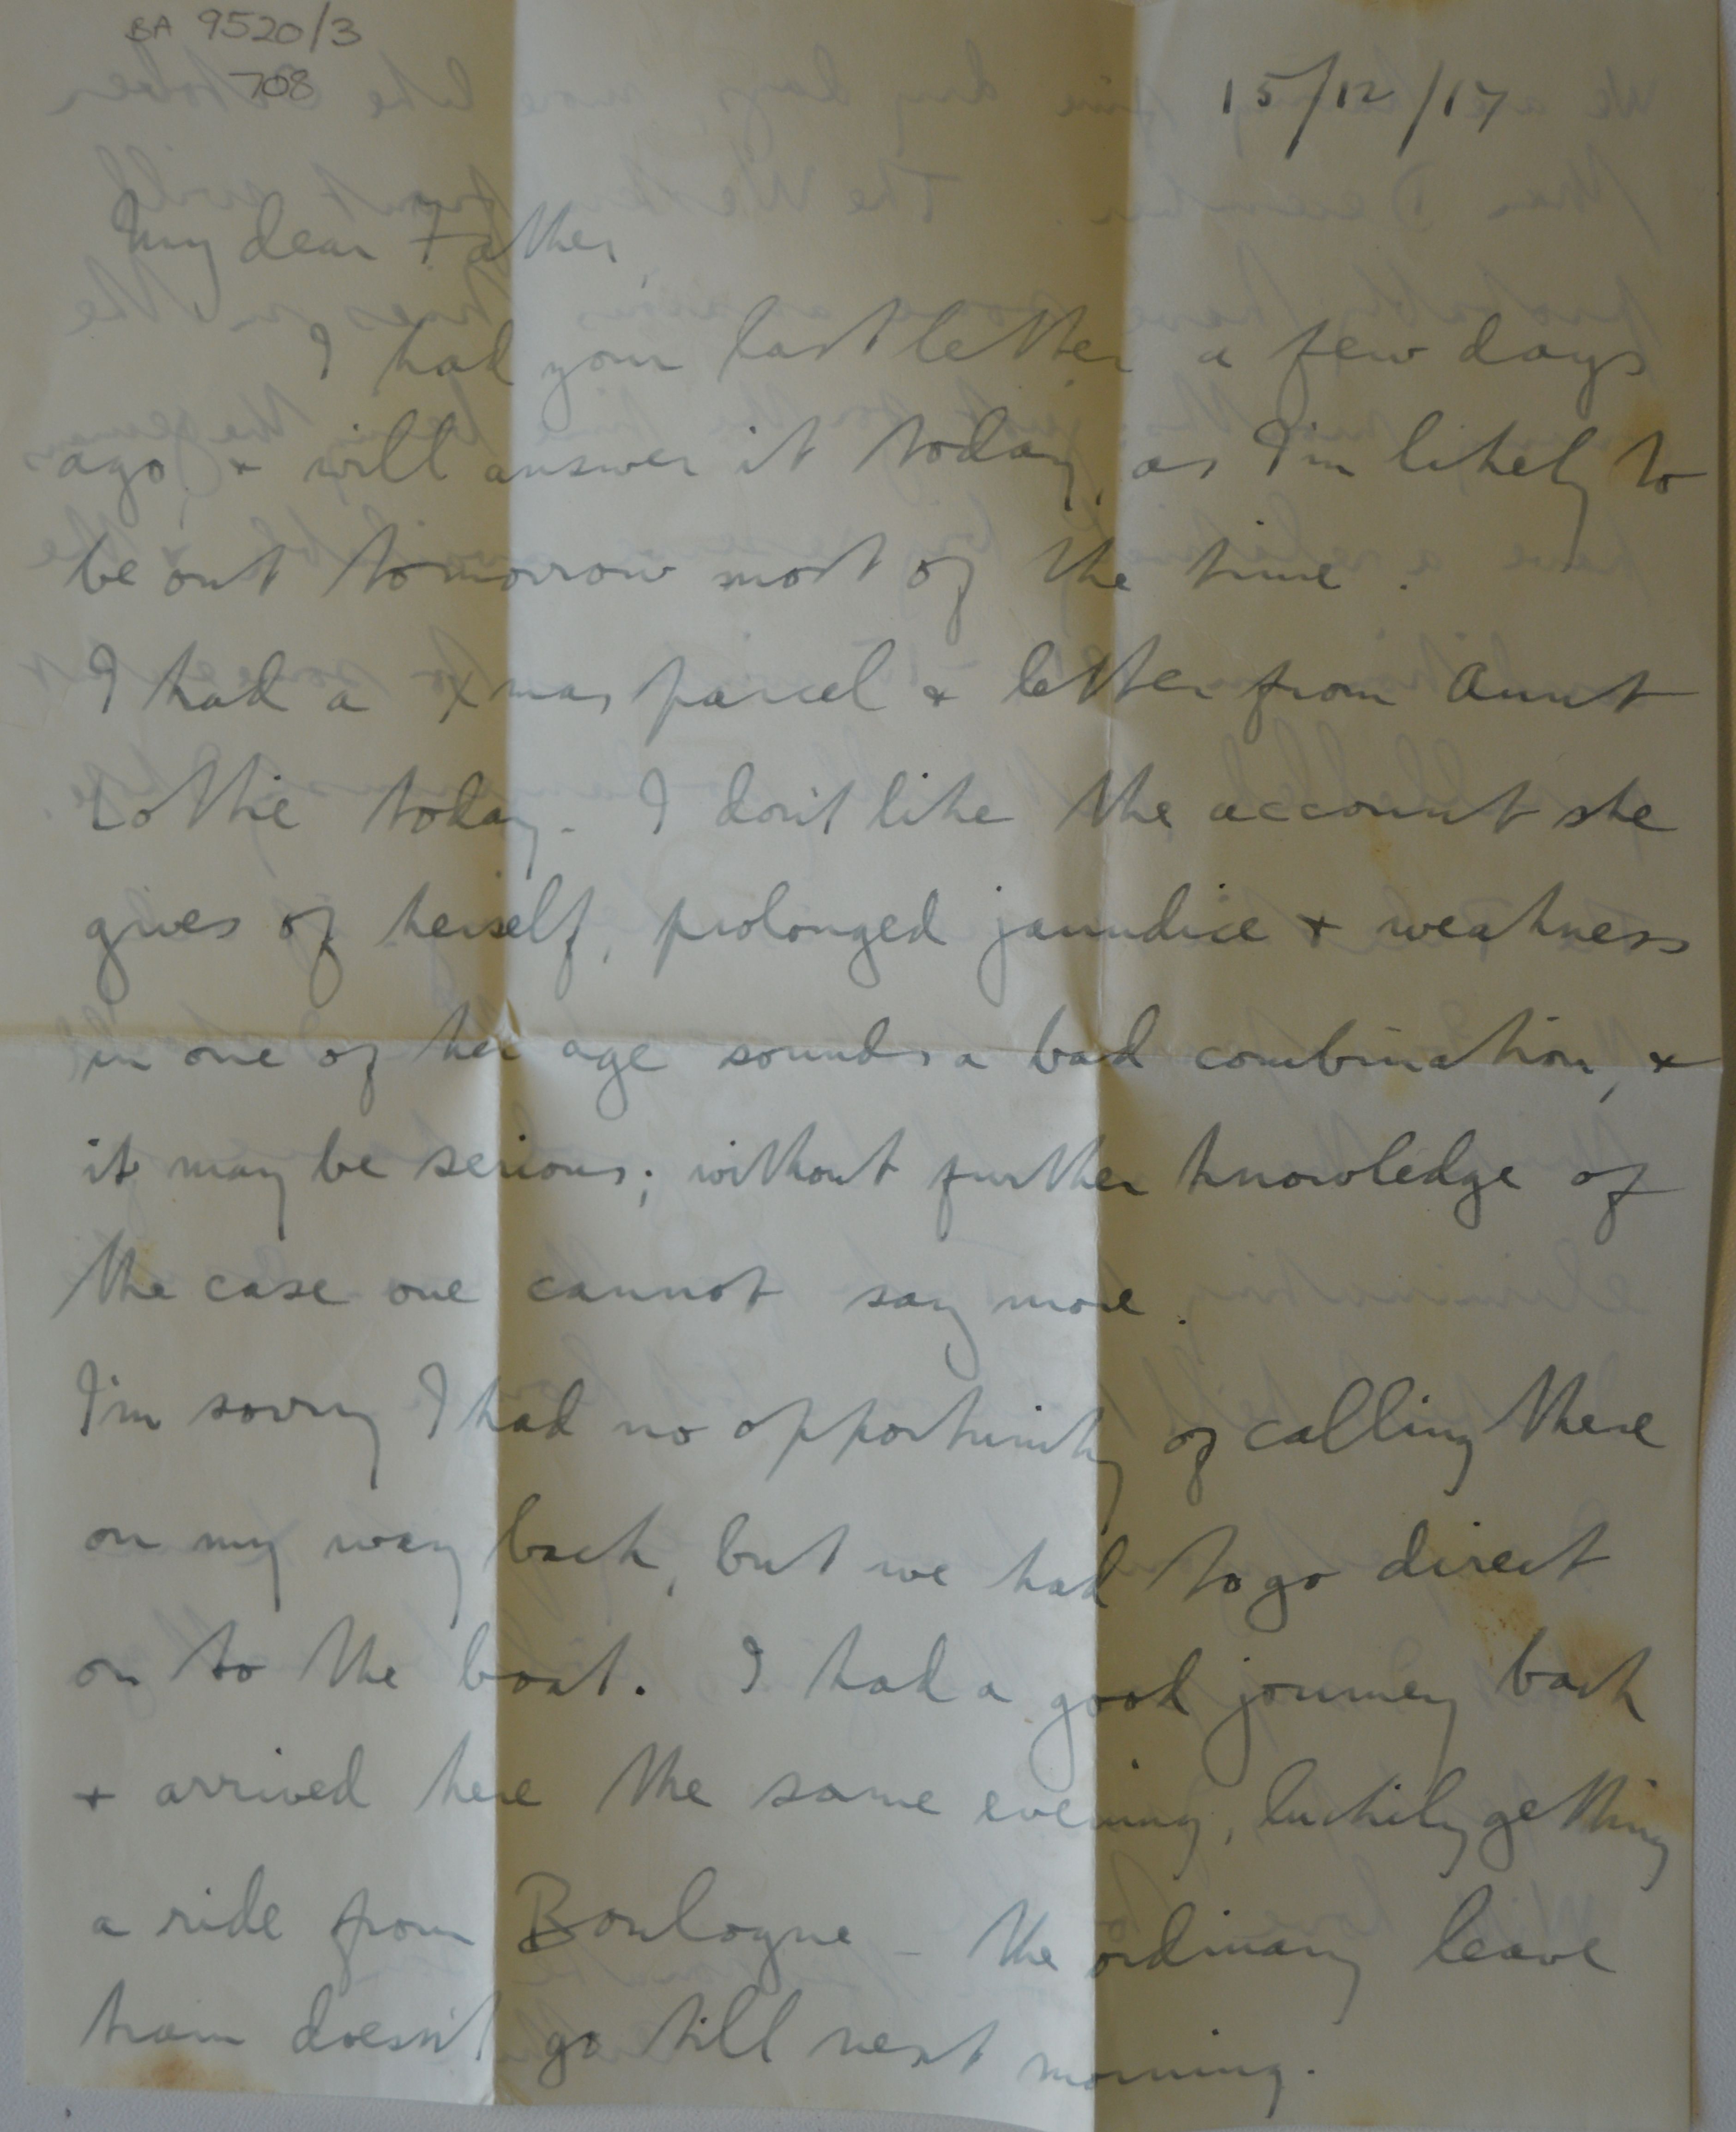 BA 9520/3
708
15/12/17
My dear Father,
I had your last letter a few days
ago, & will answer it today, as I'm likely to
be out tomorrow most of the time.
I had a Xmas parcel & letter from Aunt
Lottie today. I don't like the account she
gives of herself, prolonged jaundice & weakness
in one of her age sounds a bad combination, &
it may be serious; without further knowledge of
the case one cannot say more.
I'm sorry I had no opportunity of calling there
on my way back, but we had to go direct
on to the boat. I had a good journey back
& arrived here the same evening, luckily getting
a ride from Boulogne - the ordinary leave
train doesn't go till next morning.